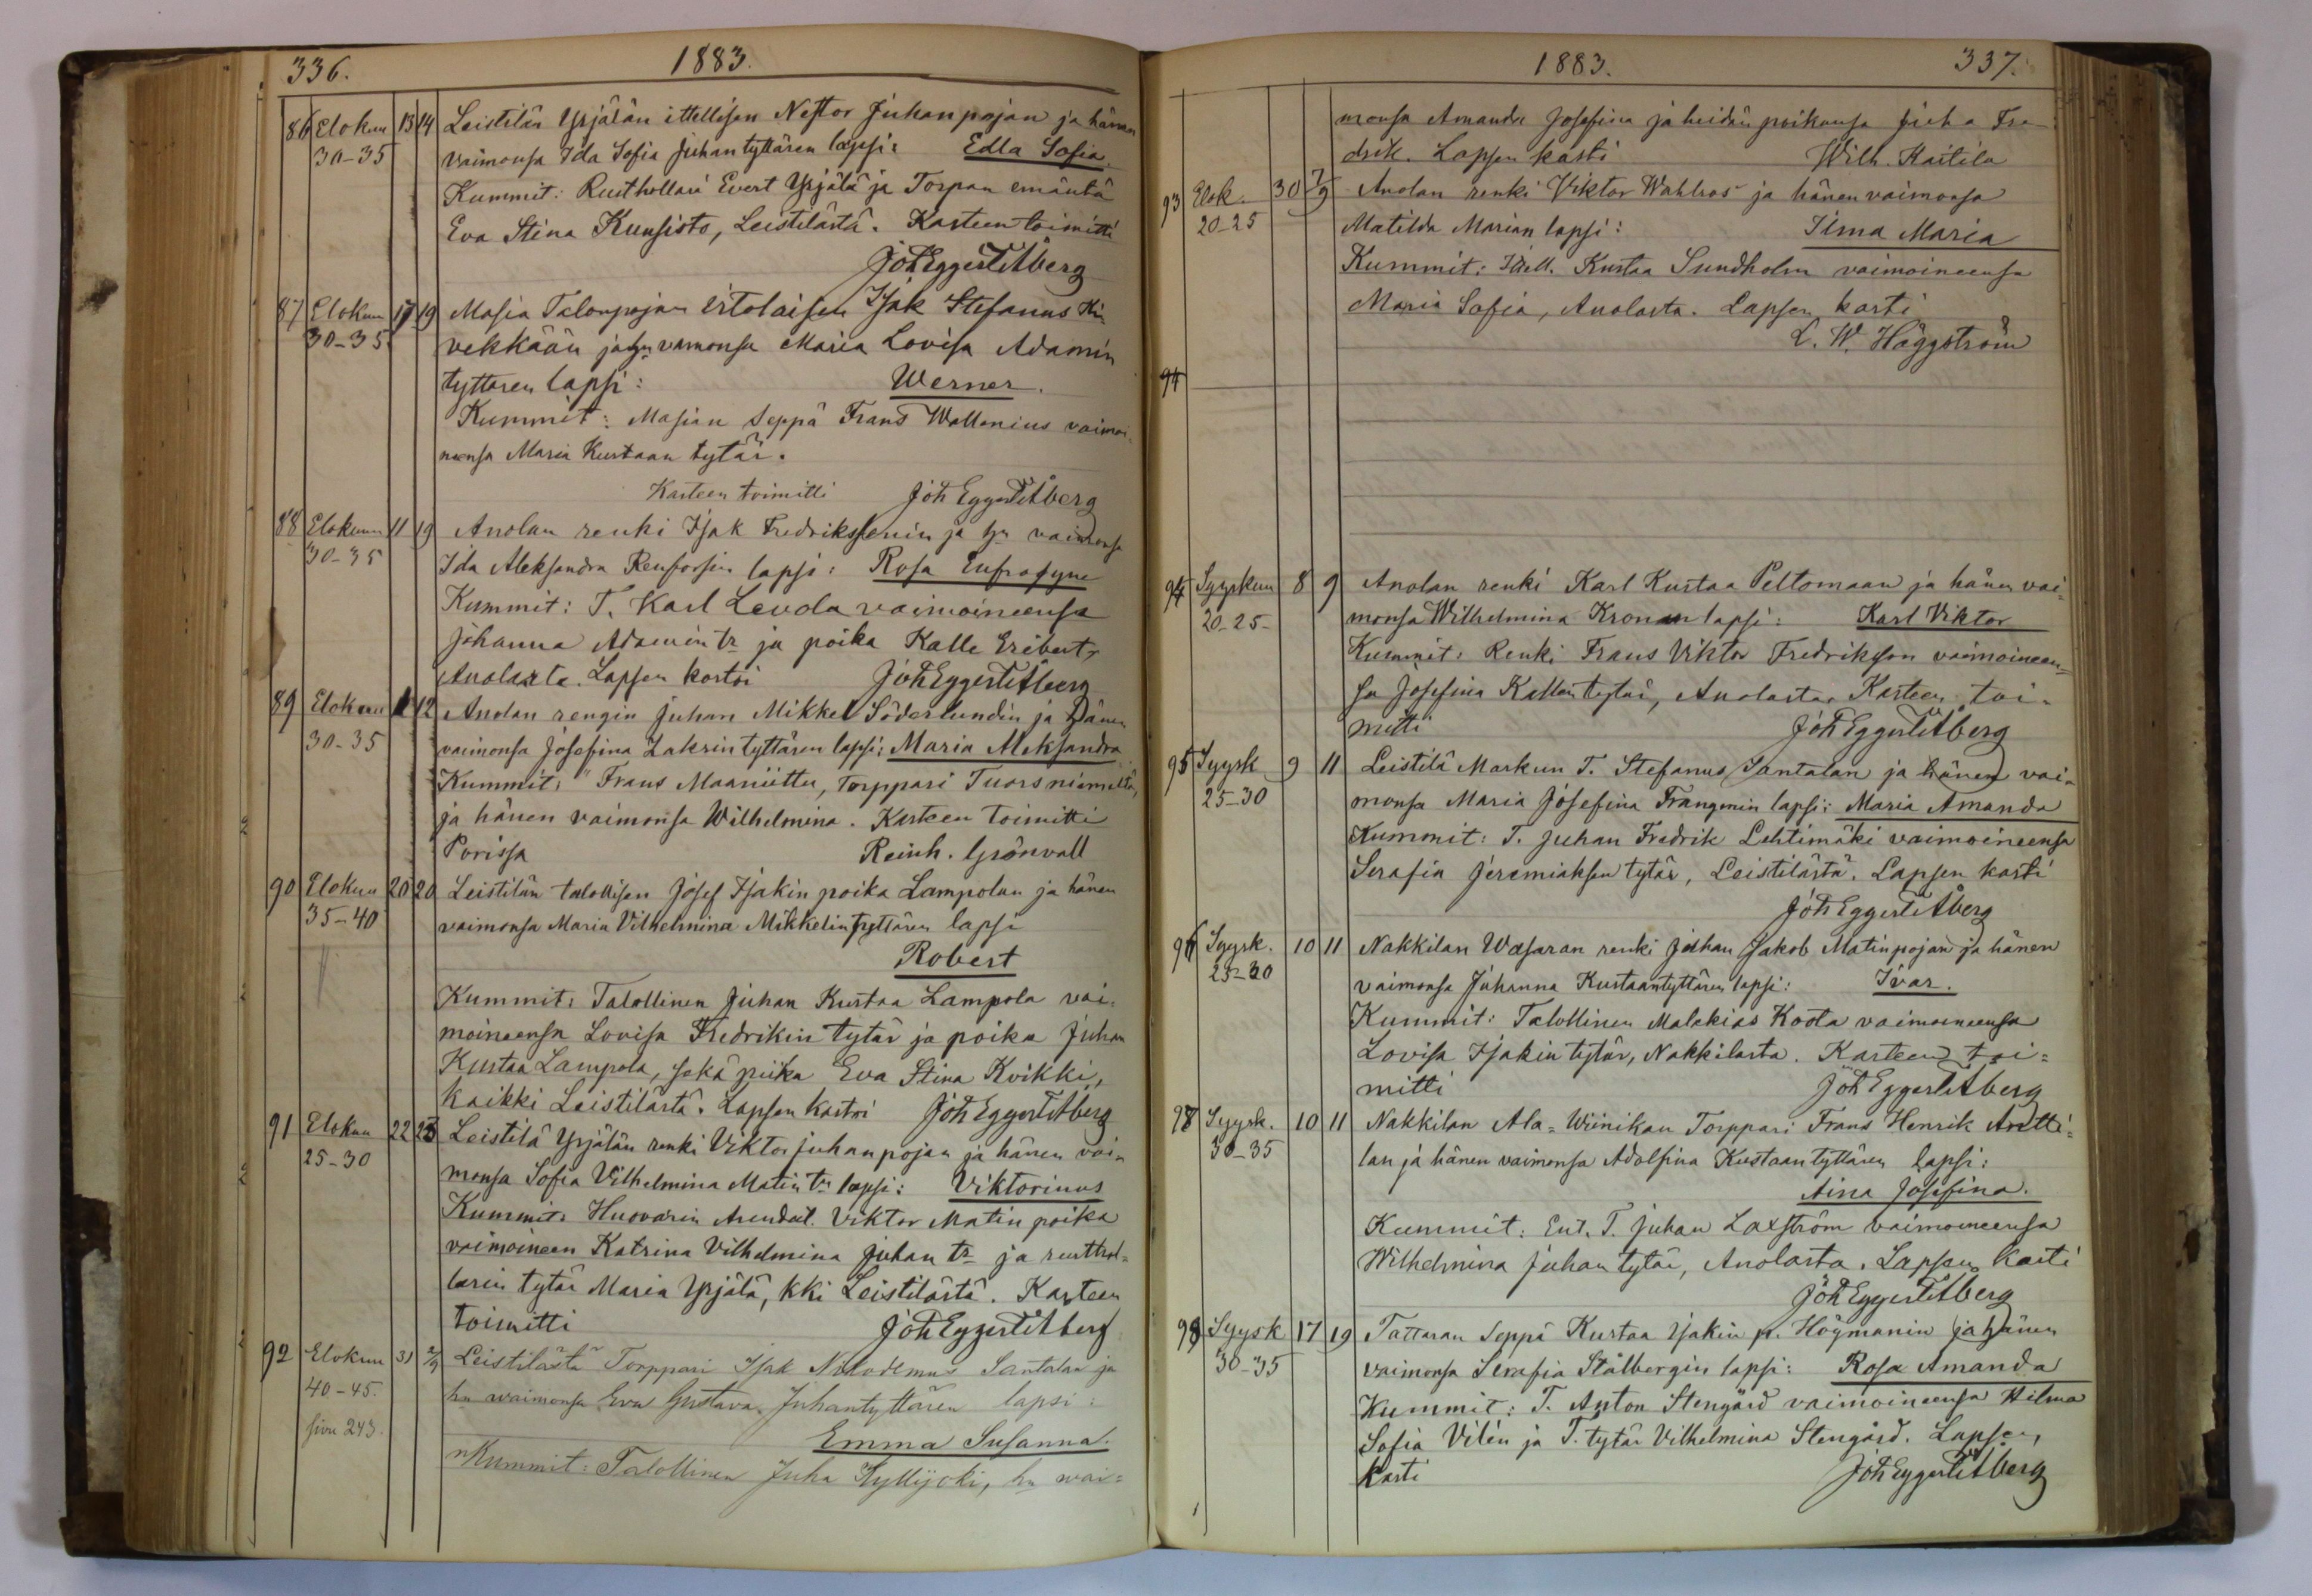 336.
1883.
86 Elokuu 13 14 Leistilän Yrjälän ittellisen Nestor Juhanpojan ja hänen
30-35 vaimonsa Ida Sofia Juhantyttären lapsi: Edla Sofia
Kummit: Rusthollari Evert Yrjälä ja Torpan emäntä
Eva Stina Kuusisto, Leistilästä. Kasteen toimitti
Joh Eggert Åberg
87 Elokuu 17 19 Masia Talonpojan Isak Stefanus
30-35 vaimonsa Maria Lovisa Adamin
tyttären lapsi: Werner.
Kummit: Masian Seppä Frans Wallenius vaimoi-
neensa Maria Kustaan tytär.
Kasteen toimitti Joh Eggert Åberg
88 Elokuu 11 19 Anolan renki Isak Fredrikssenin ja hn vaimonsa
30-35 Ida Aleksandra Renforsin lapsi: Rosa Eufrosyne
Kummit: T. Karl Levola vaimoineensa
Johanna Adamin tr ja poika Kalle Eribert,
Anolasta. Lapsen kastoi Joh Eggert Åberg
89 Elokuu 12 Anolan rengin Juhan Mikkel Söderlundin ja hänen
30-35 vaimonsa Josefina Zakrin tyttären lapsi: Maria Aleksandra
Kummit: Frans Maaniittu, Torppari Tuorsniemeltä,
ja hänen vaimonsa Wilhelmina. Kasteen toimitti
Porissa Reinh. Grönvall
90 Elokuu 20 20 Leistilän talollisen Josef Isakin poika Lampolan ja hänen
35-40 vaimonsa Maria Vilhelmina Mikkelin tyttären lapsi
Robert
Kummit: Talollinen Juhan Kustaa Lampola vai-
moineensa Lovisa Fredrikin tytär ja poika Juhan
Kustaa Lampola, sekä piika Eva Stina Kvikki,
kaikki Leistilästä. Lapsen kastoi Joh Eggert Åberg
91 Elokuu 22 23 Leistilä Yrjälän renki Viktor Juhanpojan ja hänen vai-
25-30 monsa Sofia Vilhelmina Matin trn lapsi: Viktorinus
Kummit: Huovarin Arendat. Viktor Matin poika
vaimoineen Katrina Vilhelmina Juhan tr ja rusthol-
larin tytär Maria Yrjälä, kki Leistilästä. Kasteen
toimitti Joh Eggert Åberg
92 Elokuu 31 2/9 Leistilästä Torppari Isak Nikodemus Santalan ja
40-45. hn waimonsa Eva Gustava Juhantyttären lapsi:
sivu 243. Emma Susanna.
Kummit: Talollinen Juha Kyllijoki, hn wai=
1883.
337.
monsa Amanda Josefina ja heidän poikansa Juha Fre-
drik. Lapsen kasti Wilh. Kaitila
93 Elok. 30 2/9 Anolan renki Viktor Wahlros ja hänen vaimonsa
20-25 Matilda Marian lapsi: Ilma Maria
Kummit: Itell. Kustaa Sundholm vaimoineensa
Maria Sofia, Anolasta. Lapsen kasti
L. W. Häggström
94
94 Syyskuu 8 9 Anolan renki Karl Kustaa Peltomaan ja hänen vai-
20-25- monsa Wilhelmina Kronan lapsi: Karl Viktor
Kummit: Renki Frans Viktor Fredriksson vaimoineen-
sa Josefina Kallen tytär, Anolasta. Kasteen toi-
mitti Joh Eggert Åberg
95 Syysk 9 11 Leistilä Markun T. Stefanus Santalan ja hänen vai-
25-30 monsa Maria Josefina lapsi: Maria Amanda
Kummit: T. Juhan Fredrik Lehtimäki vaimoineensa
Serafia Jeremiaksen tytär, Leistilästä. Lapsen kasti
Joh Eggert Åberg
96 Syysk. 10 11 Nakkilan Wasaran renki Juhan Jakob Matinpojan ja hänen
25-30 vaimonsa Juhanna Kustaantyttären lapsi: Ivar.
Kummit: Talollinen Malakias Koota vaimoineensa
Lovisa Isakin tytär, Nakkilasta. Kasteen toi=
mitti Joh Eggert Åberg
98 Syysk. 10 11 Nakkilan Ala=Wiinikan Torppari Frans Henrik Antti=
30-35 lan ja hänen vaimonsa Adolfina Kustaantyttären lapsi:
Aina Josefina.
Kummit: Ent. T. Juhan Laxström vaimoineensa
Wilhelmina Juhan tytär, Anolasta. Lapsen kasti
Joh Eggert Åberg
98 Syysk 17 19 Tattaran Seppä Kustaa Isakin p. Höymanin ja hänen
30-35 vaimonsa Serafia Stålbergin lapsi: Rosa Amanda
Kummit: T. Anton Stengård vaimoineensa Hilma
Sofia Vilén ja T. tytär Vilhelmina Stengård. Lapsen
kasti Joh Eggert Åberg